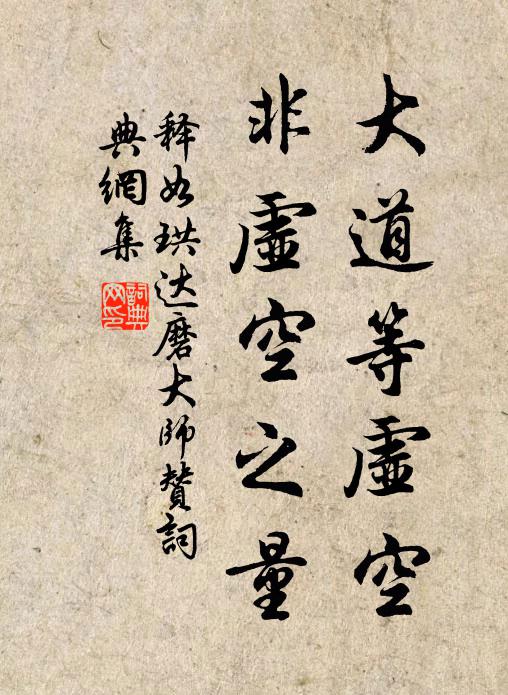 大道等虚空
非虚空之量
释如珙达磨大师赞詞
典網集
詞典
网印